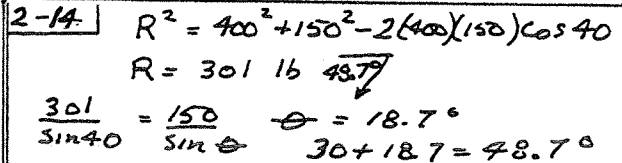 2-14. R² = 400² + 150² - 2(400)(150) cos 40
R = 301 lb 48.7°
301/sin 40 = 150/sin θ θ = 18.7°
30 + 18.7 = 48.7°